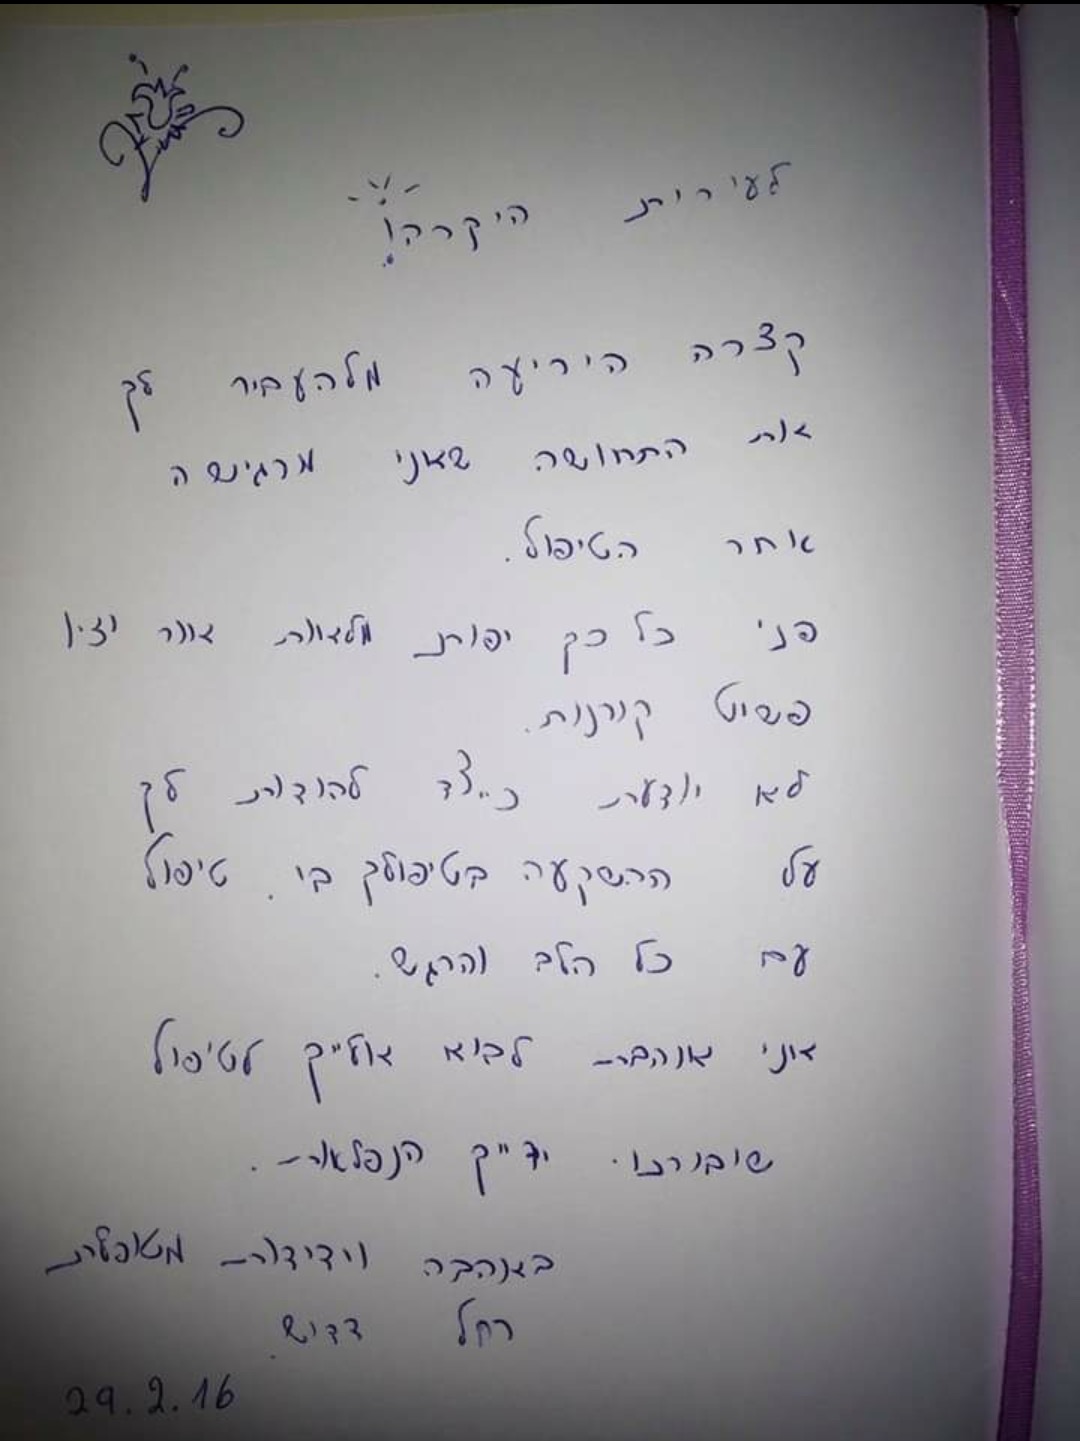 לעירית היקרה!
קצרה היריעה מלהעביר לך
את התחושה שאני מרגישה
אחר הטיפול.
פני כל כך יפות מלאות אור וזיו
פשוט קורנות.
לא יודעת כיצד להודות לך
על ההשקעה בטיפולך בי. טיפול
עם כל הלב והרגש.
אני אוהבת לבוא אלייך לטיפול
ידייך הנפלאות.
באהבה וידידות מטופלת
רחל דדיש
29.2.16